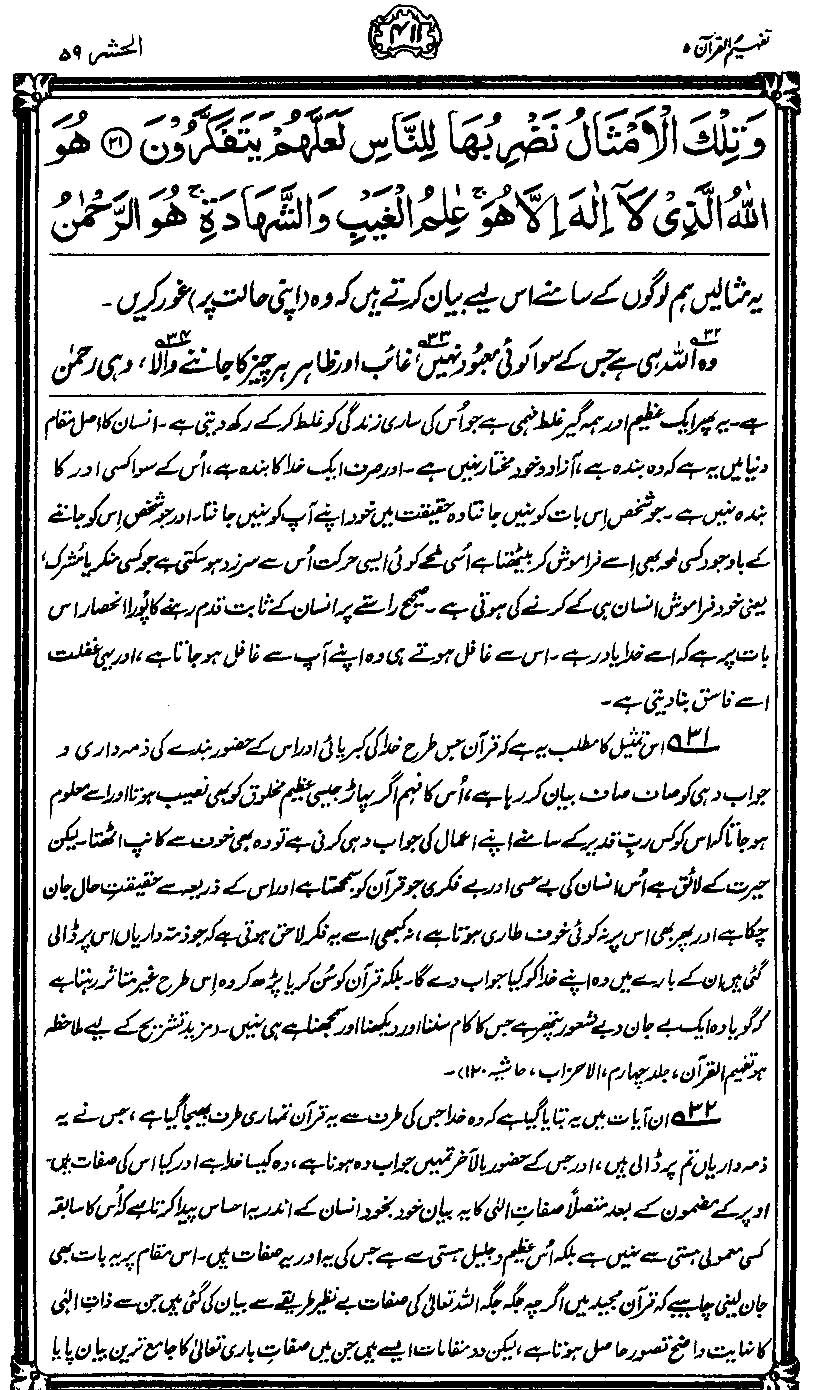 تفہیم القرآن ۵
۴۱۱
الحشر ۵۹
وَتِلْكَ الْاَمْثَالُ نَضْرِبُهَا لِلنَّاسِ لَعَلَّهُمْ يَتَفَكَّرُوْنَ ﴿۲۱﴾ هُوَ
اللّٰهُ الَّذِيْ لَاۤ اِلٰهَ اِلَّا هُوَ ۚ عٰلِمُ الْغَيْبِ وَالشَّهَادَةِ ۚ هُوَ الرَّحْمٰنُ
یہ مثالیں ہم لوگوں کے سامنے اس لیے بیان کرتے ہیں کہ وہ (اپنی حالت پر) غور کریں۔
وہ اللہ ہی ہے ۳۲ جس کے سوا کوئی معبود نہیں ۳۳، غائب اور ظاہر ہر چیز کا جاننے والا ۳۴، وہی رحمٰن
ہے۔ یہ پھر ایک عظیم اور ہمہ گیر غلط فہمی ہے جو اُس کی ساری زندگی کو غلط کر کے رکھ دیتی ہے۔ انسان کا اصل مقام
دنیا میں یہ ہے کہ وہ بندہ ہے، آزاد و خود مختار نہیں ہے۔ اور صرف ایک خدا کا بندہ ہے، اُس کے سوا کسی اور کا
بندہ نہیں ہے۔ جو شخص اِس بات کو نہیں جانتا وہ حقیقت میں خود اپنے آپ کو نہیں جانتا۔ اور جو شخص اِس کو جاننے
کے باوجود کسی لمحہ بھی اِسے فراموش کر بیٹھتا ہے اُسی لمحے کوئی ایسی حرکت اُس سے سرزد ہو سکتی ہے جو کسی منکر یا مُشرک،
یعنی خود فراموش انسان ہی کے کرنے کی ہوتی ہے۔ صحیح راستے پر انسان کے ثابت قدم رہنے کا پُورا انحصار اس
بات پر ہے کہ اسے خدا یاد رہے۔ اس سے غافل ہوتے ہی وہ اپنے آپ سے غافل ہو جاتا ہے، اور یہی غفلت
اسے فاسق بنا دیتی ہے۔
۳۱ اس تمثیل کا مطلب یہ ہے کہ قرآن جس طرح خدا کی کبریائی اور اس کے حضور بندے کی ذمہ داری و
جواب دہی کو صاف صاف بیان کر رہا ہے، اُس کا فہم اگر پہاڑ جیسی عظیم مخلوق کو بھی نصیب ہوتا اور اسے معلوم
ہو جاتا کہ اس کو کس ربِّ قدیر کے سامنے اپنے اعمال کی جواب دہی کرنی ہے تو وہ بھی خوف سے کانپ اٹھتا۔ لیکن
حیرت کے لائق ہے اُس انسان کی بے حسی اور بے فکری جو قرآن کو سمجھتا ہے اور اس کے ذریعہ سے حقیقتِ حال جان
چکا ہے اور پھر بھی اس پر نہ کوئی خوف طاری ہوتا ہے، نہ کبھی اسے یہ فکر لاحق ہوتی ہے کہ جو ذمہ داریاں اس پر ڈالی
گئی ہیں ان کے بارے میں وہ اپنے خدا کو کیا جواب دے گا۔ بلکہ قرآن کو سُن کر یا پڑھ کر وہ اِس طرح غیر متاثر رہتا ہے
کہ گویا وہ ایک بے جان و بے شعور پتھر ہے جس کا کام سننا اور دیکھنا اور سمجھنا ہے ہی نہیں۔ (مزید تشریح کے لیے ملاحظہ
ہو تفہیم القرآن، جلد چہارم، الاحزاب، حاشیہ ۱۲۰)۔
۳۲ ان آیات میں یہ بتایا گیا ہے کہ وہ خدا جس کی طرف سے یہ قرآن تمہاری طرف بھیجا گیا ہے، جس نے یہ
ذمہ داریاں تم پر ڈالی ہیں، اور جس کے حضور بالآخر تمہیں جواب دہ ہونا ہے، وہ کیسا خدا ہے اور کیا اس کی صفات ہیں۔
اوپر کے مضمون کے بعد متصلاً صفاتِ الٰہی کا یہ بیان خود بخود انسان کے اندر یہ احساس پیدا کرتا ہے کہ اُس کا سابقہ
کسی معمولی ہستی سے نہیں ہے بلکہ اُس عظیم و جلیل ہستی سے ہے جس کی یہ اور یہ صفات ہیں۔ اس مقام پر یہ بات بھی
جان لینی چاہیے کہ قرآن مجید میں اگرچہ جگہ جگہ اللہ تعالیٰ کی صفات بے نظیر طریقے سے بیان کی گئی ہیں جن سے ذاتِ الٰہی
کا نہایت واضح تصور حاصل ہوتا ہے، لیکن دو مقامات ایسے ہیں جن میں صفاتِ باری تعالیٰ کا جامع ترین بیان پایا